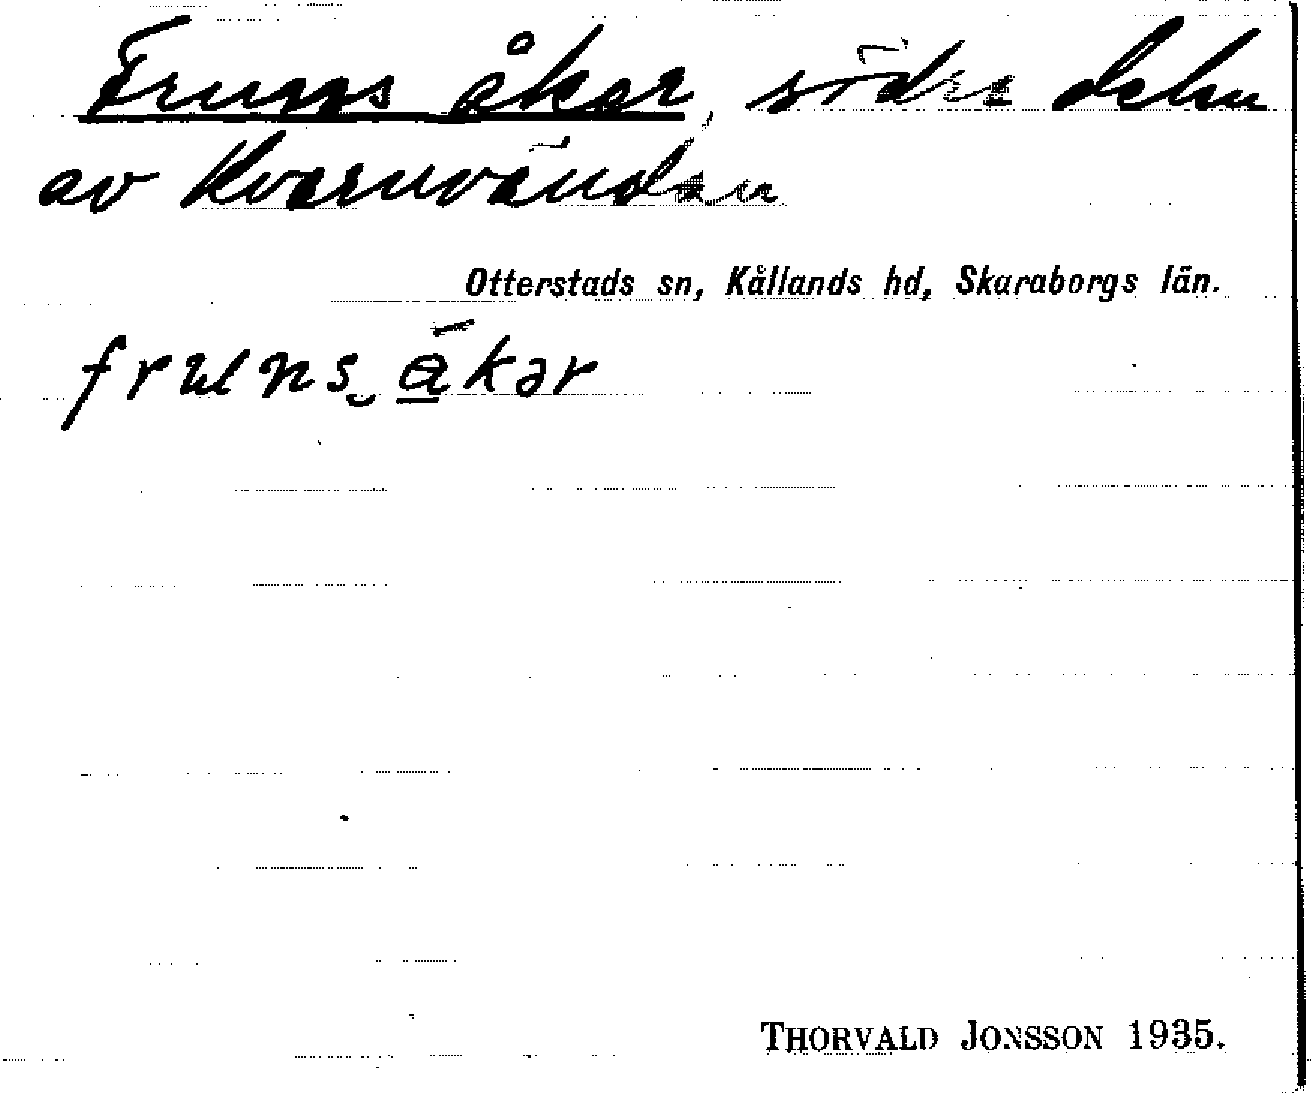 Fruns åkar, södra delen
av Kvarnvändan
Otterstads sn, Kållands hd, Skaraborgs län.
fruns åkar
THORVALD JONSSON 1935.